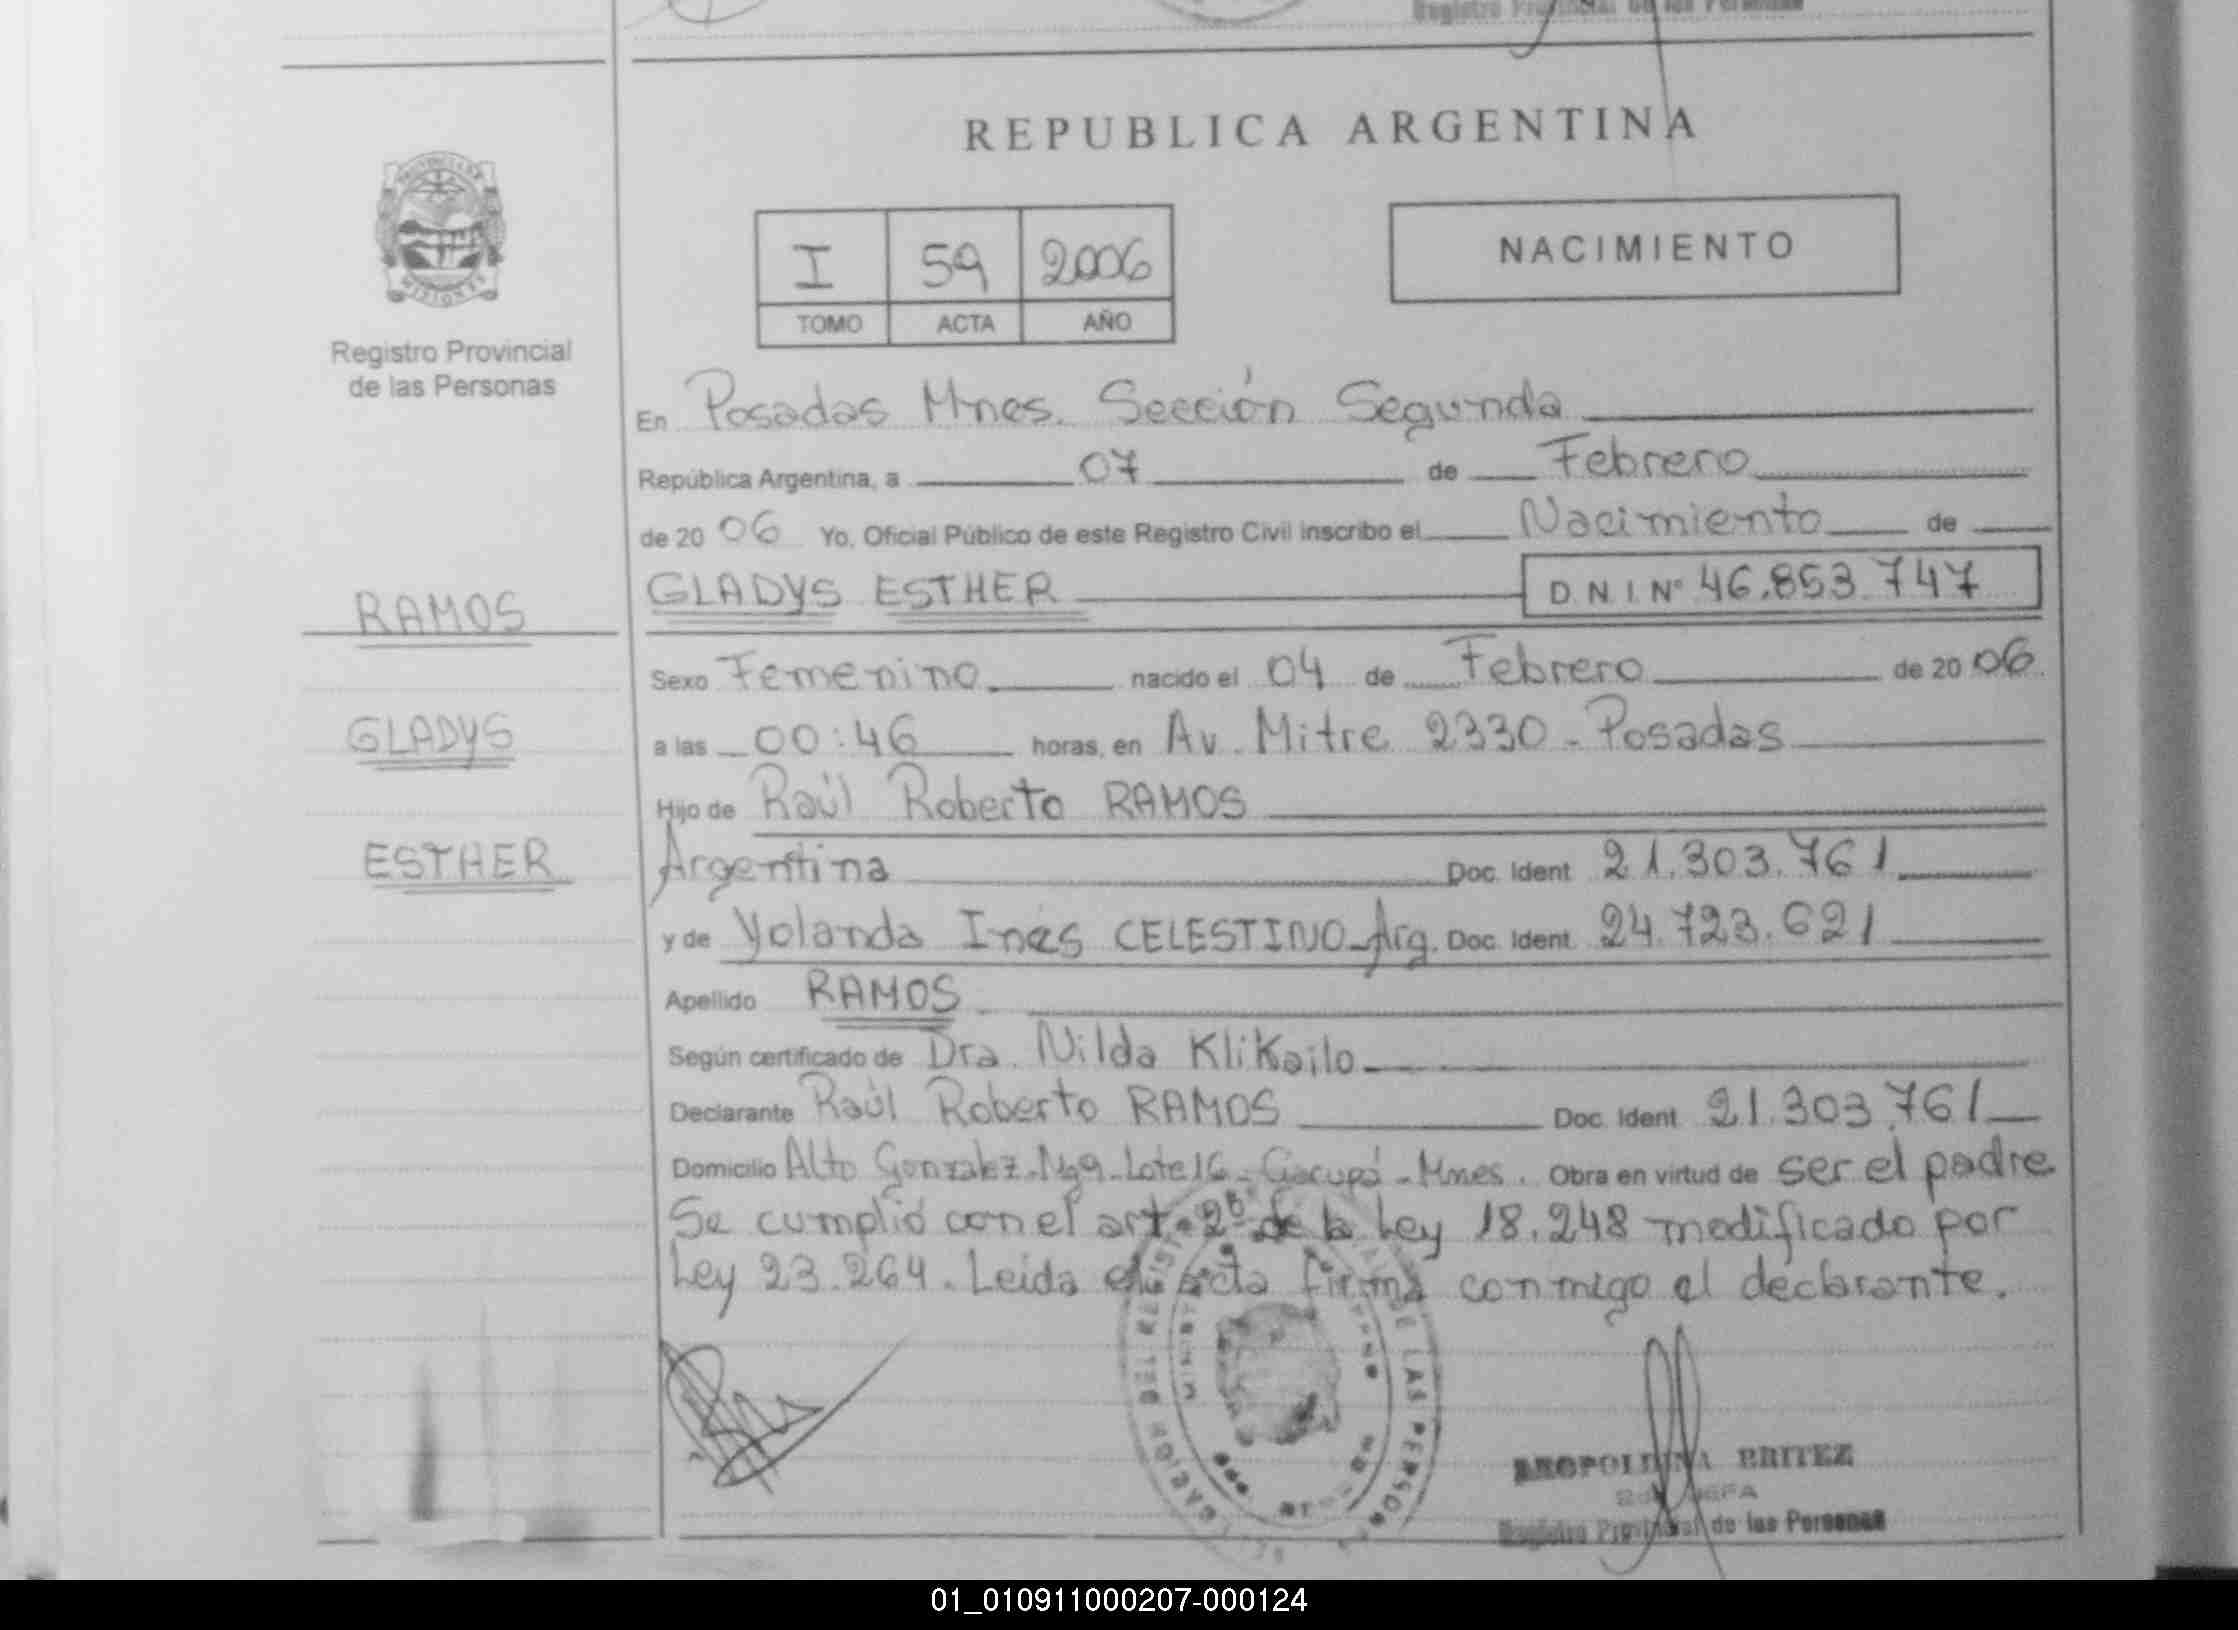 Registro Provincial de las Personas
REPUBLICA ARGENTINA
PROVINCIA DE
MISIONES
Registro Provincial
de las Personas
I 59 2006
TOMO ACTA AÑO
NACIMIENTO
En Posadas Mnes. Sección Segunda
República Argentina, a 07 de Febrero
de 2006 Yo, Oficial Público de este Registro Civil inscribo el Nacimiento de
RAMOS
GLADYS ESTHER D.N.I. Nº 46.853.747
Sexo Femenino nacido el 04 de Febrero de 2006.
GLADYS
a las 00:46 horas, en Av. Mitre 2330 - Posadas
Hijo de Raúl Roberto RAMOS
ESTHER
Argentina Doc. Ident 21.303.761
y de Yolanda Inés CELESTINO - Arg. Doc. Ident. 24.723.621
Apellido RAMOS
Según certificado de Dra. Nilda KliKailo
Declarante Raúl Roberto RAMOS Doc. Ident. 21.303.761
Domicilio Alto Gonzalez - Lote 16 - Garupá - Mnes. Obra en virtud de ser el padre
Se cumplió con el art. 2º de la Ley 18.248 modificado por
Ley 23.264. Leida el acta firma conmigo el declarante.
DEL REGIST DE LAS PERSON
LEOPOLDINA BRITEZ
JEFA
Registro Provincial de las Personas
01_010911000207-000124